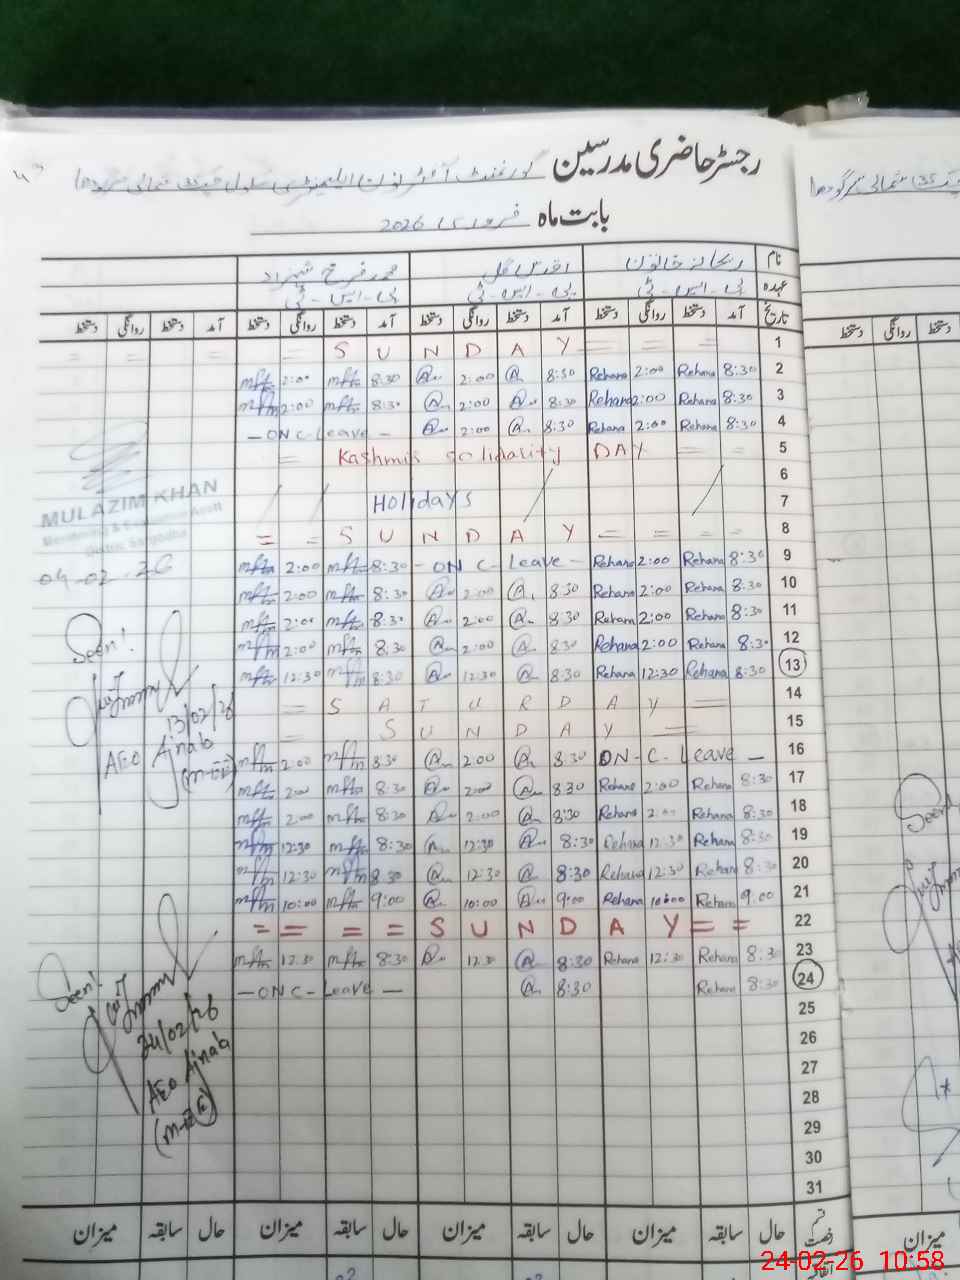 رجسٹر حاضری مدرسین گورنمنٹ
بابت ماہ فروری 2026
نام ریحانہ خاتون اقدس گل محمد فرخ شہزاد
عہدہ پی-ایس-ٹی پی-ایس-ٹی پی-ایس-ٹی
تاریخ آمد دستخط روانگی دستخط آمد دستخط روانگی دستخط آمد دستخط روانگی دستخط آمد دستخط روانگی دستخط
= = = = = S U N D A Y = = = 1
2:00 8:30 2:00 8:30 Rehana 2:00 Rehana 8:30 2
2:00 8:30 2:00 8:30 Rehana 2:00 Rehana 8:30 3
- ON C- Leave - 2:00 8:30 Rehana 2:00 Rehana 8:30 4
= Kashmir solidarity DAY = = 5
6
Holidays 7
= = S U N D A Y = = = = 8
2:00 8:30 - ON C- Leave - Rehana 2:00 Rehana 8:30 9
2:00 8:30 2:00 8:30 Rehana 2:00 Rehana 8:30 10
2:00 8:30 2:00 8:30 Rehana 2:00 Rehana 8:30 11
2:00 8:30 2:00 8:30 Rehana 2:00 Rehana 8:30 12
12:30 8:30 12:30 8:30 Rehana 12:30 Rehana 8:30 13
= S A T U R D A Y = 14
= S U N D A Y = 15
2:00 8:30 2:00 8:30 ON-C-Leave - 16
2:00 8:30 2:00 8:30 Rehana 2:00 Rehana 8:30 17
2:00 8:30 2:00 8:30 Rehana 2:00 Rehana 8:30 18
12:30 8:30 12:30 8:30 Rehana 12:30 Rehana 8:30 19
12:30 8:30 12:30 8:30 Rehana 12:30 Rehana 8:30 20
10:00 9:00 10:00 9:00 Rehana 10:00 Rehana 9:00 21
= = = = S U N D A Y = = 22
12:30 8:30 12:30 8:30 Rehana 12:30 Rehana 8:30 23
- ON C- Leave - 8:30 Rehana 8:30 24
25
26
27
28
29
30
31
قسم رخصت حال سابقہ میزان حال سابقہ میزان حال سابقہ میزان حال سابقہ میزان
MULAZIM KHAN
04-02-26
Seen!
13/02/26
AEO Ajnala
Seen!
24/02/26
AEO Ajnala
دستخط روانگی دستخط
Seen!
میزان
24-02-26 10:58